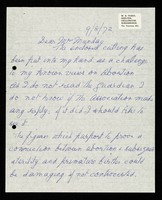 4/6/72
Dear Mrs Munday,
The enclosed cutting has
been put into my hand as a challenge
to my known views on Abortion.
As I do not read the Guardian I
do not know if the Association made
any reply; if it did I should like to
see it.
The figures which purport to prove a
connection between abortion & subsequent
sterility and premature births could
be damaging if not contradicted.